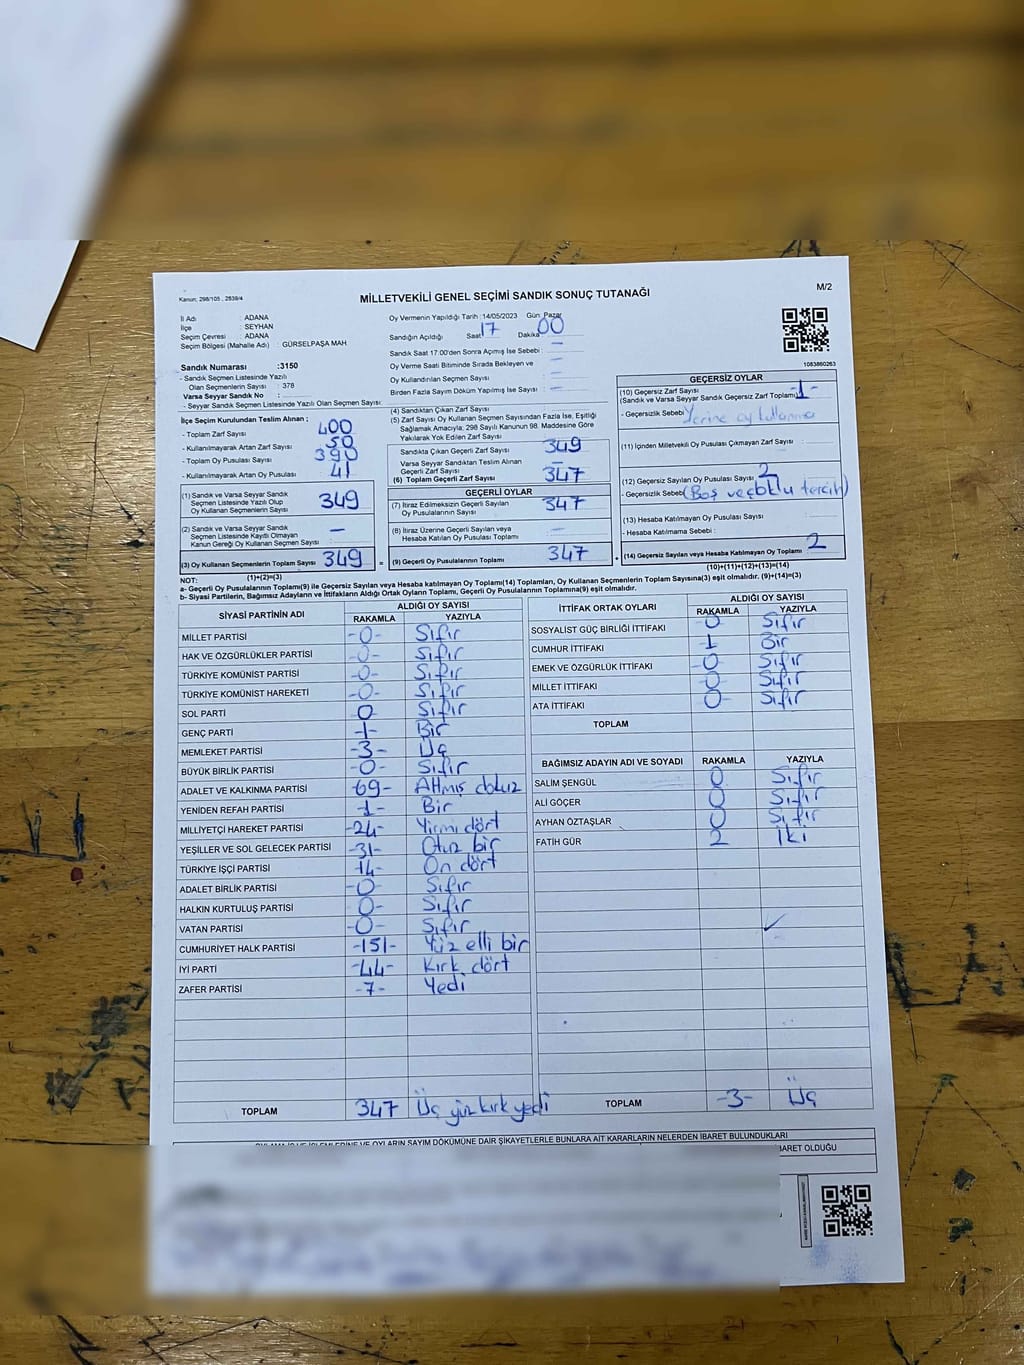 Kanun; 298/105 , 2839/4
MİLLETVEKİLİ GENEL SEÇİMİ SANDIK SONUÇ TUTANAĞI
M/2
İl Adı : ADANA
İlçe : SEYHAN
Seçim Çevresi : ADANA
Seçim Bölgesi (Mahalle Adı) : GÜRSELPAŞA MAH
Sandık Numarası :3150
- Sandık Seçmen Listesinde Yazılı
Olan Seçmenlerin Sayısı : 378
Varsa Seyyar Sandık No :
- Seyyar Sandık Seçmen Listesinde Yazılı Olan Seçmen Sayısı:
İlçe Seçim Kurulundan Teslim Alınan ;
- Toplam Zarf Sayısı : 400
- Kullanılmayarak Artan Zarf Sayısı : 50
- Toplam Oy Pusulası Sayısı : 390
- Kullanılmayarak Artan Oy Pusulası : 41
(1) Sandık ve Varsa Seyyar Sandık
Seçmen Listesinde Yazılı Olup
Oy Kullanan Seçmenlerin Sayısı : 349
(2) Sandık ve Varsa Seyyar Sandık
Seçmen Listesinde Kayıtlı Olmayan
Kanun Gereği Oy Kullanan Seçmen Sayısı : -
(3) Oy Kullanan Seçmenlerin Toplam Sayısı : 349
(1)+(2)=(3)
Oy Vermenin Yapıldığı Tarih :14/05/2023 Gün: Pazar
Sandığın Açıldığı Saat 17 Dakika 00
Sandık Saat 17:00'den Sonra Açımış İse Sebebi : -
Oy Verme Saati Bitiminde Sırada Bekleyen ve
Oy Kullandırılan Seçmen Sayısı : -
Birden Fazla Sayım Döküm Yapılmış İse Sayısı : -
(4) Sandıktan Çıkan Zarf Sayısı :
(5) Zarf Sayısı Oy Kullanan Seçmen Sayısından Fazla İse, Eşitliği
Sağlamak Amacıyla; 298 Sayılı Kanunun 98. Maddesine Göre
Yakılarak Yok Edilen Zarf Sayısı :
Sandıkta Çıkan Geçerli Zarf Sayısı : 349
Varsa Seyyar Sandıktan Teslim Alınan
Geçerli Zarf Sayısı : -
(6) Toplam Geçerli Zarf Sayısı : 347
GEÇERLİ OYLAR
(7) İtiraz Edilmeksizin Geçerli Sayılan
Oy Pusulalarının Sayısı : 347
(8) İtiraz Üzerine Geçerli Sayılan veya
Hesaba Katılan Oy Pusulası Toplamı : -
= (9) Geçerli Oy Pusulalarının Toplamı : 347
1083860263
GEÇERSİZ OYLAR
(10) Geçersiz Zarf Sayısı
(Sandık ve Varsa Seyyar Sandık Geçersiz Zarf Toplamı) : -1-
- Geçersizlik Sebebi : Yerine oy kullanma
(11) İçinden Milletvekili Oy Pusulası Çıkmayan Zarf Sayısı :
(12) Geçersiz Sayılan Oy Pusulası Sayısı : 2
- Geçersizlik Sebebi (Boş ve çoklu tercih)
(13) Hesaba Katılmayan Oy Pusulası Sayısı :
- Hesaba Katılmama Sebebi :
+ (14) Geçersiz Sayılan veya Hesaba Katılmayan Oy Toplamı : 2
(10)+(11)+(12)+(13)=(14)
NOT:
a- Geçerli Oy Pusulalarının Toplamı(9) ile Geçersiz Sayılan veya Hesaba katılmayan Oy Toplamı(14) Toplamları, Oy Kullanan Seçmenlerin Toplam Sayısına(3) eşit olmalıdır. (9)+(14)=(3)
b- Siyasi Partilerin, Bağımsız Adayların ve İttifakların Aldığı Ortak Oyların Toplamı, Geçerli Oy Pusulalarının Toplamına(9) eşit olmalıdır.
SİYASİ PARTİNİN ADI ALDIĞI OY SAYISI
RAKAMLA YAZIYLA
MİLLET PARTİSİ -0- Sıfır
HAK VE ÖZGÜRLÜKLER PARTİSİ -0- Sıfır
TÜRKİYE KOMÜNİST PARTİSİ -0- Sıfır
TÜRKİYE KOMÜNİST HAREKETİ -0- Sıfır
SOL PARTİ 0 Sıfır
GENÇ PARTİ -1- Bir
MEMLEKET PARTİSİ -3- Üç
BÜYÜK BİRLİK PARTİSİ -0- Sıfır
ADALET VE KALKINMA PARTİSİ -69- Altmış dokuz
YENİDEN REFAH PARTİSİ -1- Bir
MİLLİYETÇİ HAREKET PARTİSİ -24- Yirmi dört
YEŞİLLER VE SOL GELECEK PARTİSİ -31- Otuz bir
TÜRKİYE İŞÇİ PARTİSİ -14- On dört
ADALET BİRLİK PARTİSİ -0- Sıfır
HALKIN KURTULUŞ PARTİSİ -0- Sıfır
VATAN PARTİSİ -0- Sıfır
CUMHURİYET HALK PARTİSİ -151- Yüz elli bir
İYİ PARTİ -44- Kırk dört
ZAFER PARTİSİ -7- Yedi
TOPLAM 347 Üç yüz kırk yedi
İTTİFAK ORTAK OYLARI ALDIĞI OY SAYISI
RAKAMLA YAZIYLA
SOSYALİST GÜÇ BİRLİĞİ İTTİFAKI -0- Sıfır
CUMHUR İTTİFAKI -1- Bir
EMEK VE ÖZGÜRLÜK İTTİFAKI -0- Sıfır
MİLLET İTTİFAKI -0- Sıfır
ATA İTTİFAKI -0- Sıfır
TOPLAM
BAĞIMSIZ ADAYIN ADI VE SOYADI RAKAMLA YAZIYLA
SALİM ŞENGÜL 0 Sıfır
ALİ GÖÇER 0 Sıfır
AYHAN ÖZTAŞLAR 0 Sıfır
FATİH GÜR 2 İki
TOPLAM -3- Üç
OYLAMA İŞ VE İŞLEMLERİNE VE OYLARIN SAYIM DÖKÜMÜNE DAİR ŞİKAYETLERLE BUNLARA AİT KARARLARIN NELERDEN İBARET BULUNDUKLARI
İBARET OLDUĞU